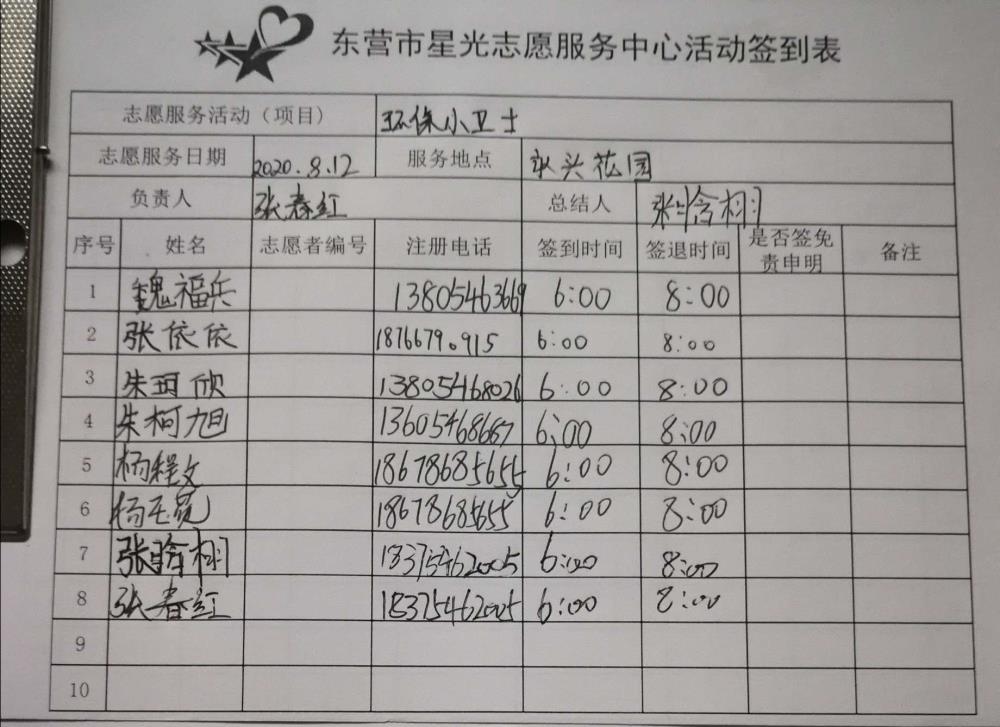 东营市星光志愿服务中心活动签到表
志愿服务活动（项目） 环保小卫士
志愿服务日期 2020.8.12 服务地点 永头花园
负责人 张春红 总结人 张晗栩
序号 姓名 志愿者编号 注册电话 签到时间 签退时间 是否签免责申明 备注
1 魏福兵 13805463669 6:00 8:00
2 张依依 1876679.915 6:00 8:00
3 朱珂欣 13805468026 6:00 8:00
4 朱柯旭 13605468687 6:00 8:00
5 杨程文 18678685655 6:00 8:00
6 杨 18678685655 6:00 8:00
7 张晗栩 18375462005 6:00 8:00
8 张春红 18375462005 6:00 8:00
9
10